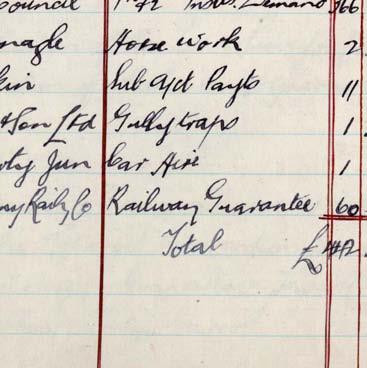 ouncil Demand 166
nagle Horse work 2
kin Sub Actt Payts 11
&Son Ltd Gully traps 1
Jun Car Hire 1
Raily Co Railway Guarantee 60
Total £442